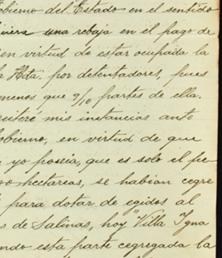 obierno del Estado en el sentido
iniera una rebaja en el pago de
en virtud de estar ocupada la
a Alta por detentadores, pues
menos que 9/10 partes de ella.
mis instancias ante
obierno, en virtud de que
yo poseia, que es solo el pre
hectareas, se habian cegre
para dotar de egidos al
s de Salinas, hoy "Villa Igna
ndo esta parte cegregada la